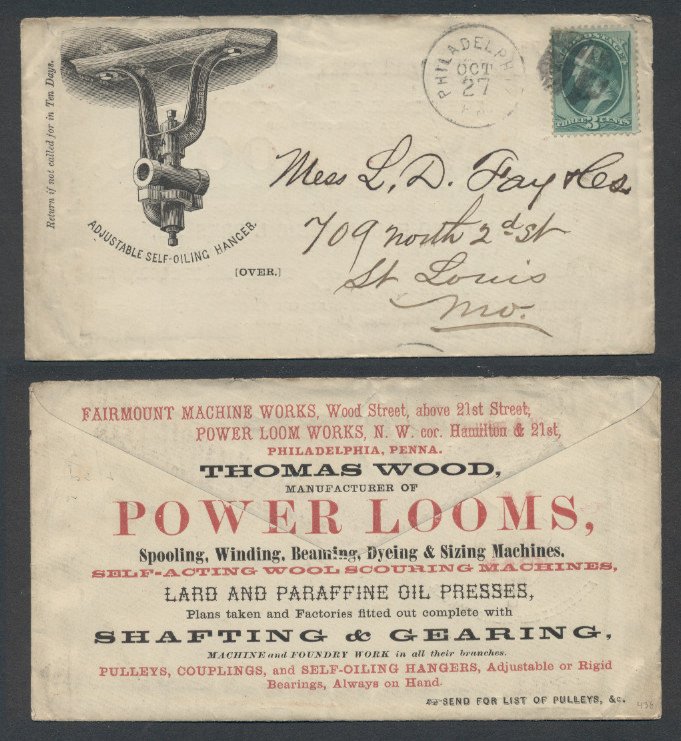 Return if not called for in Ten Days.
ADJUSTABLE SELF-OILING HANGER.
[OVER.]
PHILADELPHIA
OCT
27
PA
THREE 3 CENTS
Mess L. D. Fay & Co
709 north 2d st
St Louis
Mo.
FAIRMOUNT MACHINE WORKS, Wood Street, above 21st Street,
POWER LOOM WORKS, N. W. cor. Hamilton & 21st,
PHILADELPHIA, PENNA.
THOMAS WOOD,
MANUFACTURER OF
POWER LOOMS,
Spooling, Winding, Beaming, Dyeing & Sizing Machines,
SELF-ACTING WOOL SCOURING MACHINES,
LARD AND PARAFFINE OIL PRESSES,
Plans taken and Factories fitted out complete with
SHAFTING & GEARING,
MACHINE and FOUNDRY WORK in all their branches.
PULLEYS, COUPLINGS, and SELF-OILING HANGERS, Adjustable or Rigid
Bearings, Always on Hand.
☞ SEND FOR LIST OF PULLEYS, &c.